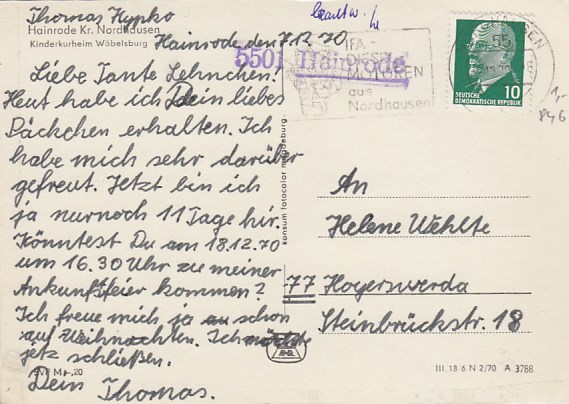 Thomas Hypko
Hainrode Kr. Nordhausen
Kinderkurheim Wöbelsburg
Hainrode, den 7.12.70
5501 Hainrode
IFA-
MOTOREN
aus
Nordhausen
DEUTSCHE
DEMOKRATISCHE REPUBLIK
10
1,-
846
Liebe Tante Lehnchen!
Heut habe ich Dein liebes
Päckchen erhalten. Ich
habe mich sehr darüber
gefreut. Jetzt bin ich
ja nurnoch 11 Tage hir.
Könntest Du am 18.12.70
um 16.30 Uhr zu meiner
Ankunftfeier kommen?
Ich freue mich ja schon
auf Weihnachten. Ich möchte
jetz schließen.
Dein Thomas.
konsum fotocolor magdeburg
An
Helene Wehlte
77 Hoyerswerda
Steinbrückstr. 18
EVP M -,20
III 18 6 N 2/70 A 3788